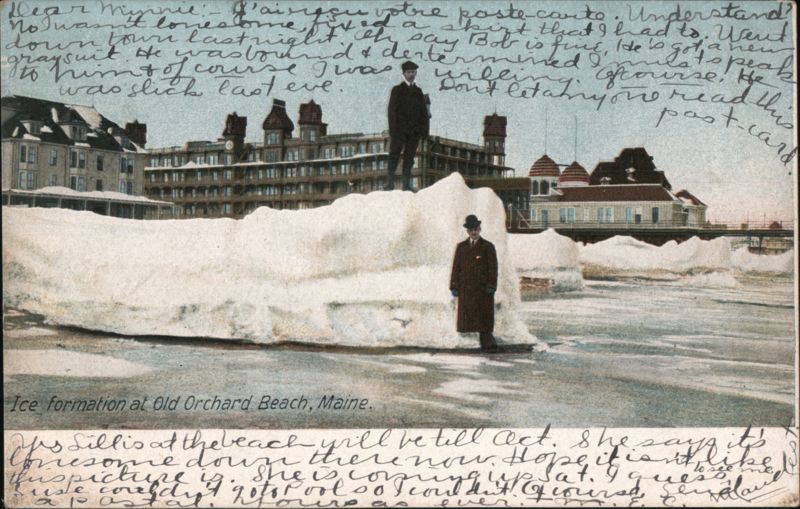 Dear Minnie:- J'ai recu votre poste-carte. Understand?
No I wasn't lonesome, fixed a skirt that I had to. Went
down town last night Oh say Bob is fine, He's got a new
gray suit He was bound & determined I must speak
to him & of course I was willing ofcourse. He
was slick last eve. Don't let anyone read this
past-card.
Ice formation at Old Orchard Beach, Maine.
Mrs Lill is at the beach will be till Oct. She says it's
lonesome down there now. Hope it isn't like
this picture is. She is coming up Sat. I guess, to see me
'cuse couldn't go to Pool so I couldn't. Ofcourse send
a postal. Yours as ever. M. E.